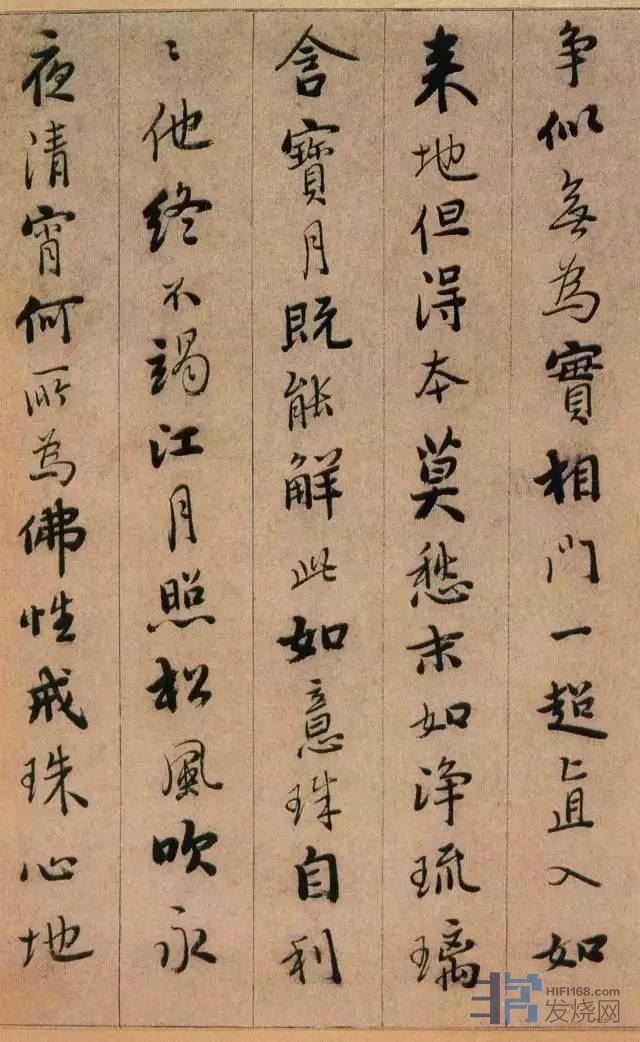 争似無為實相門一超直入如
来地但得本莫愁末如淨琉璃
含寶月既能解此如意珠自利
〻他終不竭江月照松風吹永
夜清宵何所為佛性戒珠心地
HIFI168.com
发烧网